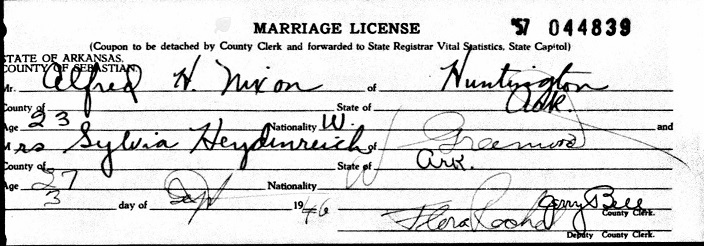 MARRIAGE LICENSE '57 044839
(Coupon to be detached by County Clerk and forwarded to State Registrar Vital Statistics, State Capitol)
STATE OF ARKANSAS.
COUNTY OF SEBASTIAN
Mr. Alfred H. Nixon of Huntington
County of State of Ark
Age 23 Nationality W. and
Mrs Sylvia Heydenreich of Greenwood
County of State of Ark.
Age 27 Nationality W
3 day of Sept 1946 Jerry Bell
County Clerk.
Flora
Deputy County Clerk.